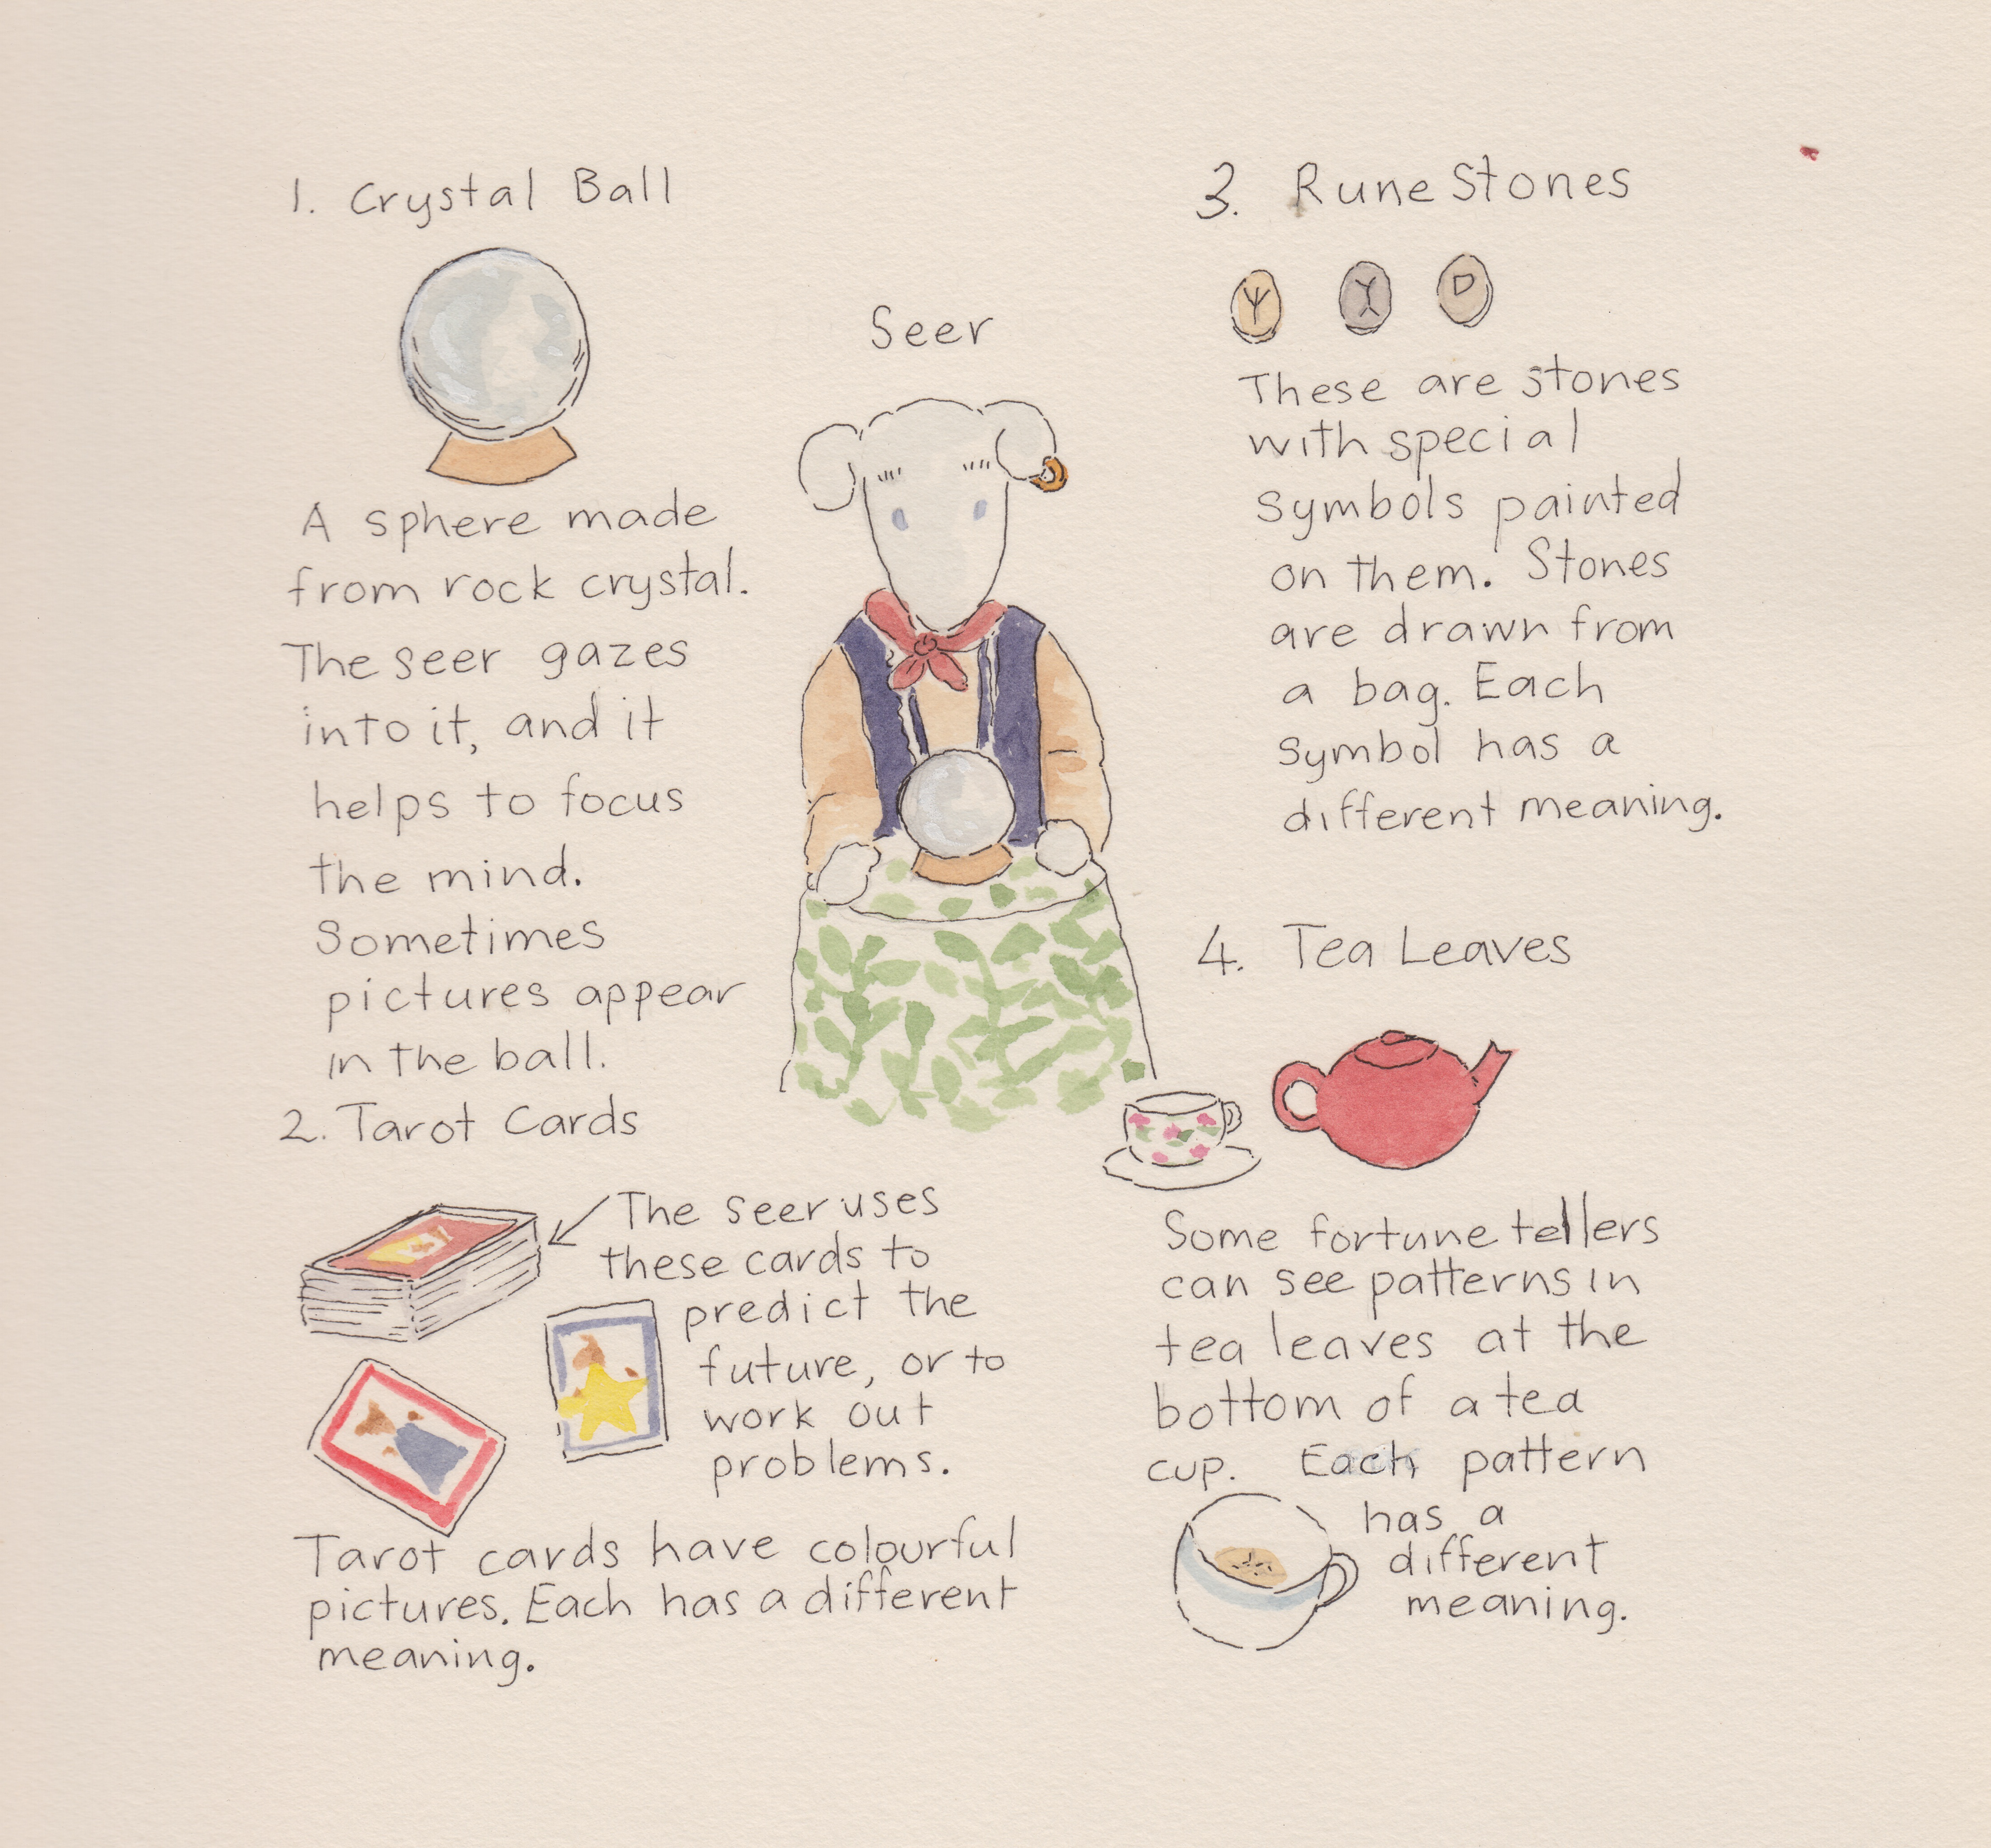 1. Crystal Ball
A sphere made
from rock crystal.
The seer gazes
into it, and it
helps to focus
the mind.
Sometimes
pictures appear
in the ball.
2. Tarot Cards
The seer uses
these cards to
predict the
future, or to
work out
problems.
Tarot cards have colourful
pictures. Each has a different
meaning.
Seer
3. Rune Stones
These are stones
with special
symbols painted
on them. Stones
are drawn from
a bag. Each
symbol has a
different meaning.
4. Tea Leaves
Some fortune tellers
can see patterns in
tea leaves at the
bottom of a tea
cup. Each pattern
has a
different
meaning.